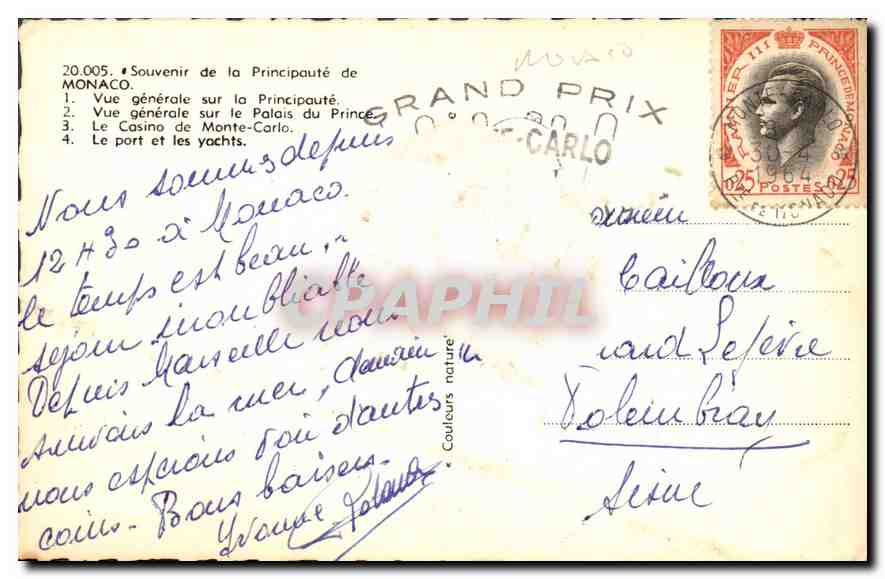 20.005. • Souvenir de la Principauté de
MONACO.
1. Vue générale sur la Principauté.
2. Vue générale sur le Palais du Prince.
3. Le Casino de Monte-Carlo.
4. Le port et les yachts.
MONACO
GRAND PRIX
CARLO
RAINIER III PRINCE DE MONACO
30-4
1964
025 POSTES 025
Nous sommes depuis
12 H 30 à Monaco.
le temps est beau,
séjour inoubliable
Depuis Marseille nous
suivons la mer, demain
nous espérons voir d'autres
coins. Bons baisers.
Yvonne
Couleurs nature
CPAPHIL
Cailloux
nard Lefèvre
Seine